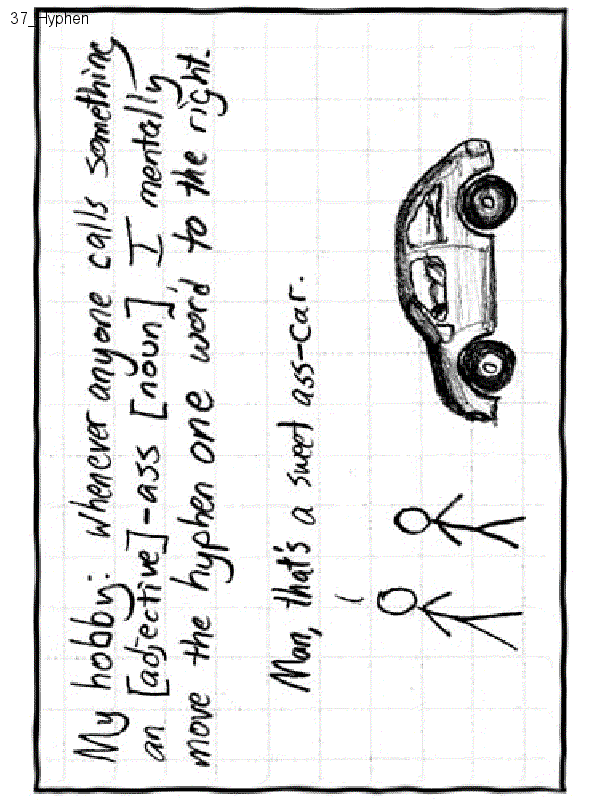 37_Hyphen
My hobby: whenever anyone calls something
an [adjective]-ass [noun], I mentally
move the hyphen one word to the right.
Man, that's a sweet ass-car.